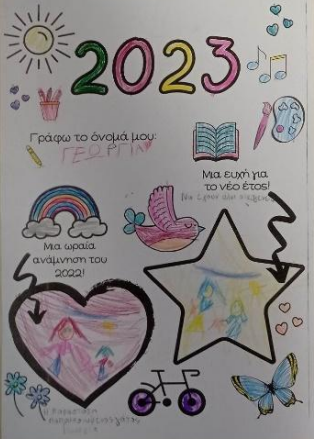 2023
Γράφω το όνομά μου:
ΓΕΩΡΓΙΑ
Μια ευχή για
το νέο έτος!
Να έχουν όλοι
Μια ωραία
ανάμνηση του
2022!
Η